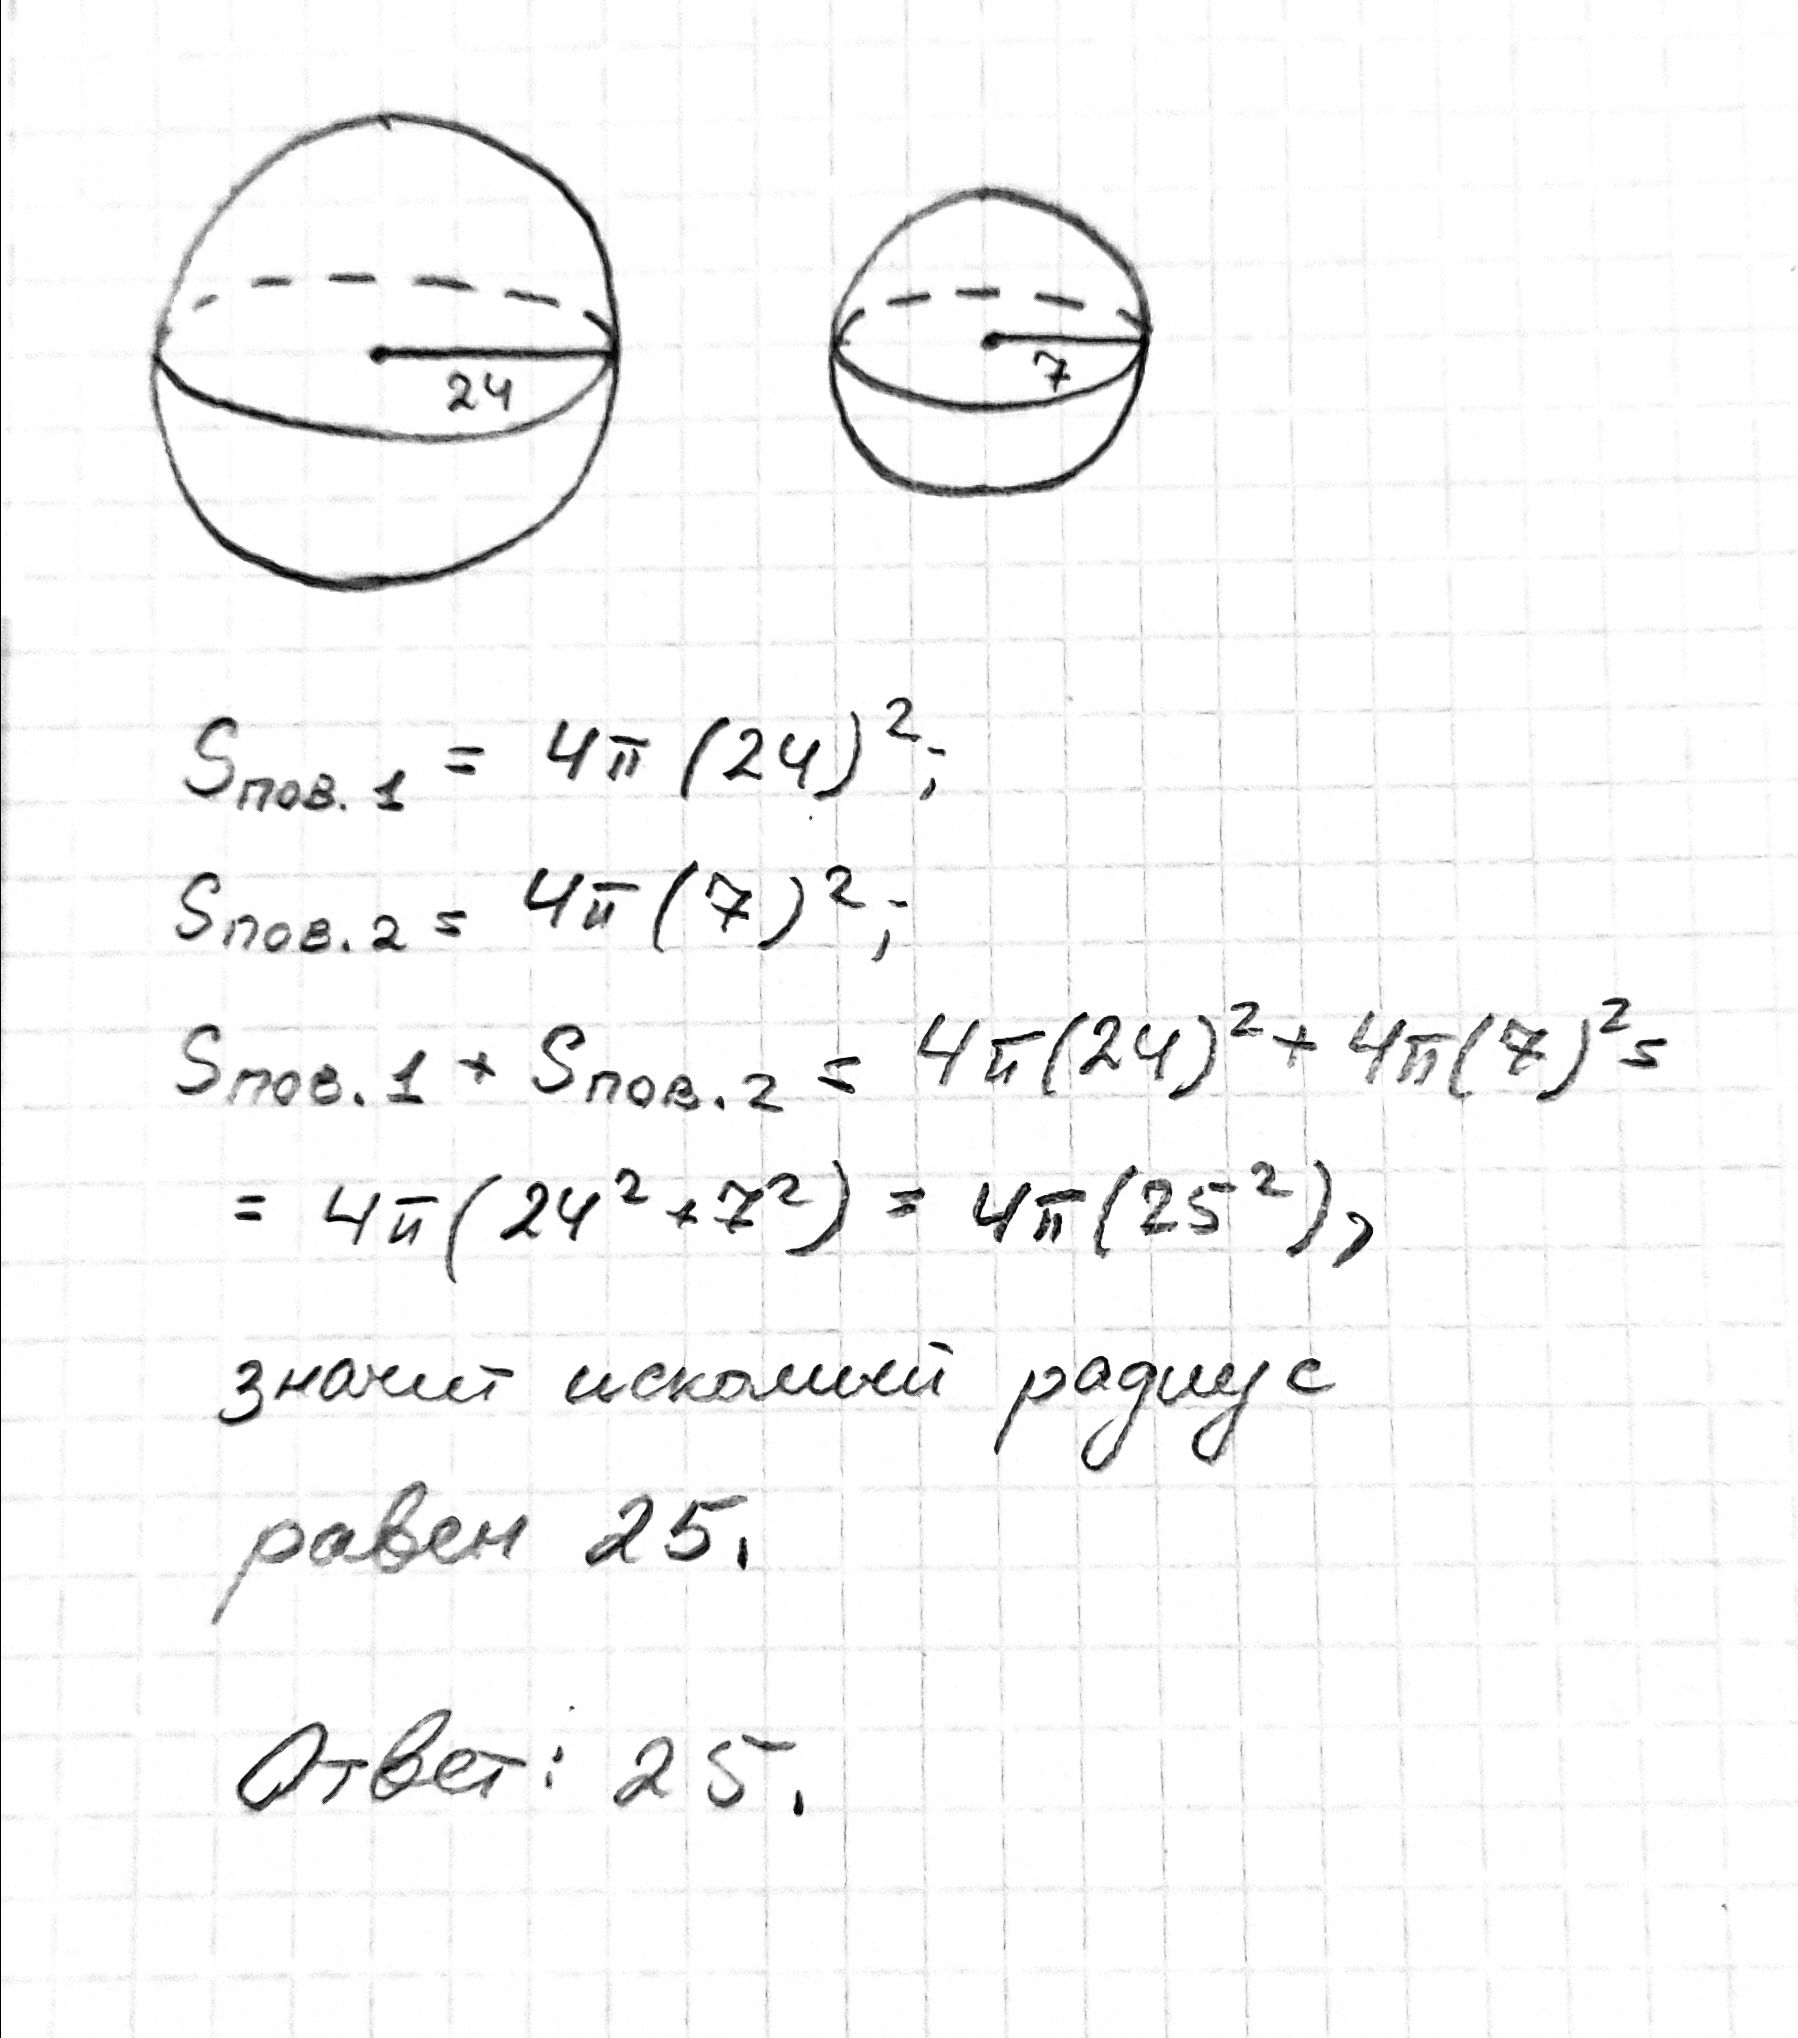 24
7
Sпов. 1 = 4π (24)²;
Sпов. 2 = 4π (7)²;
Sпов. 1 + Sпов. 2 = 4π(24)² + 4π(7)² =
= 4π(24² + 7²) = 4π(25²),
значит искомый радиус
равен 25.
Ответ: 25.